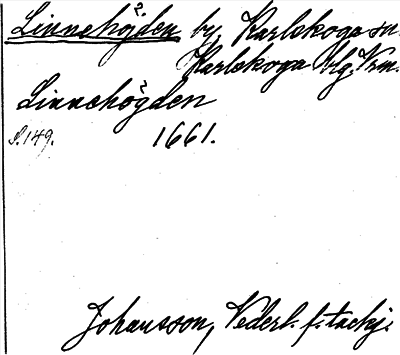 Linnehöjden by, Karlskoga sn.
Karlskoga blg. Vrm.
Linnehögden
S. 149. 1661.
Johansson, Vederl. f. tackj.